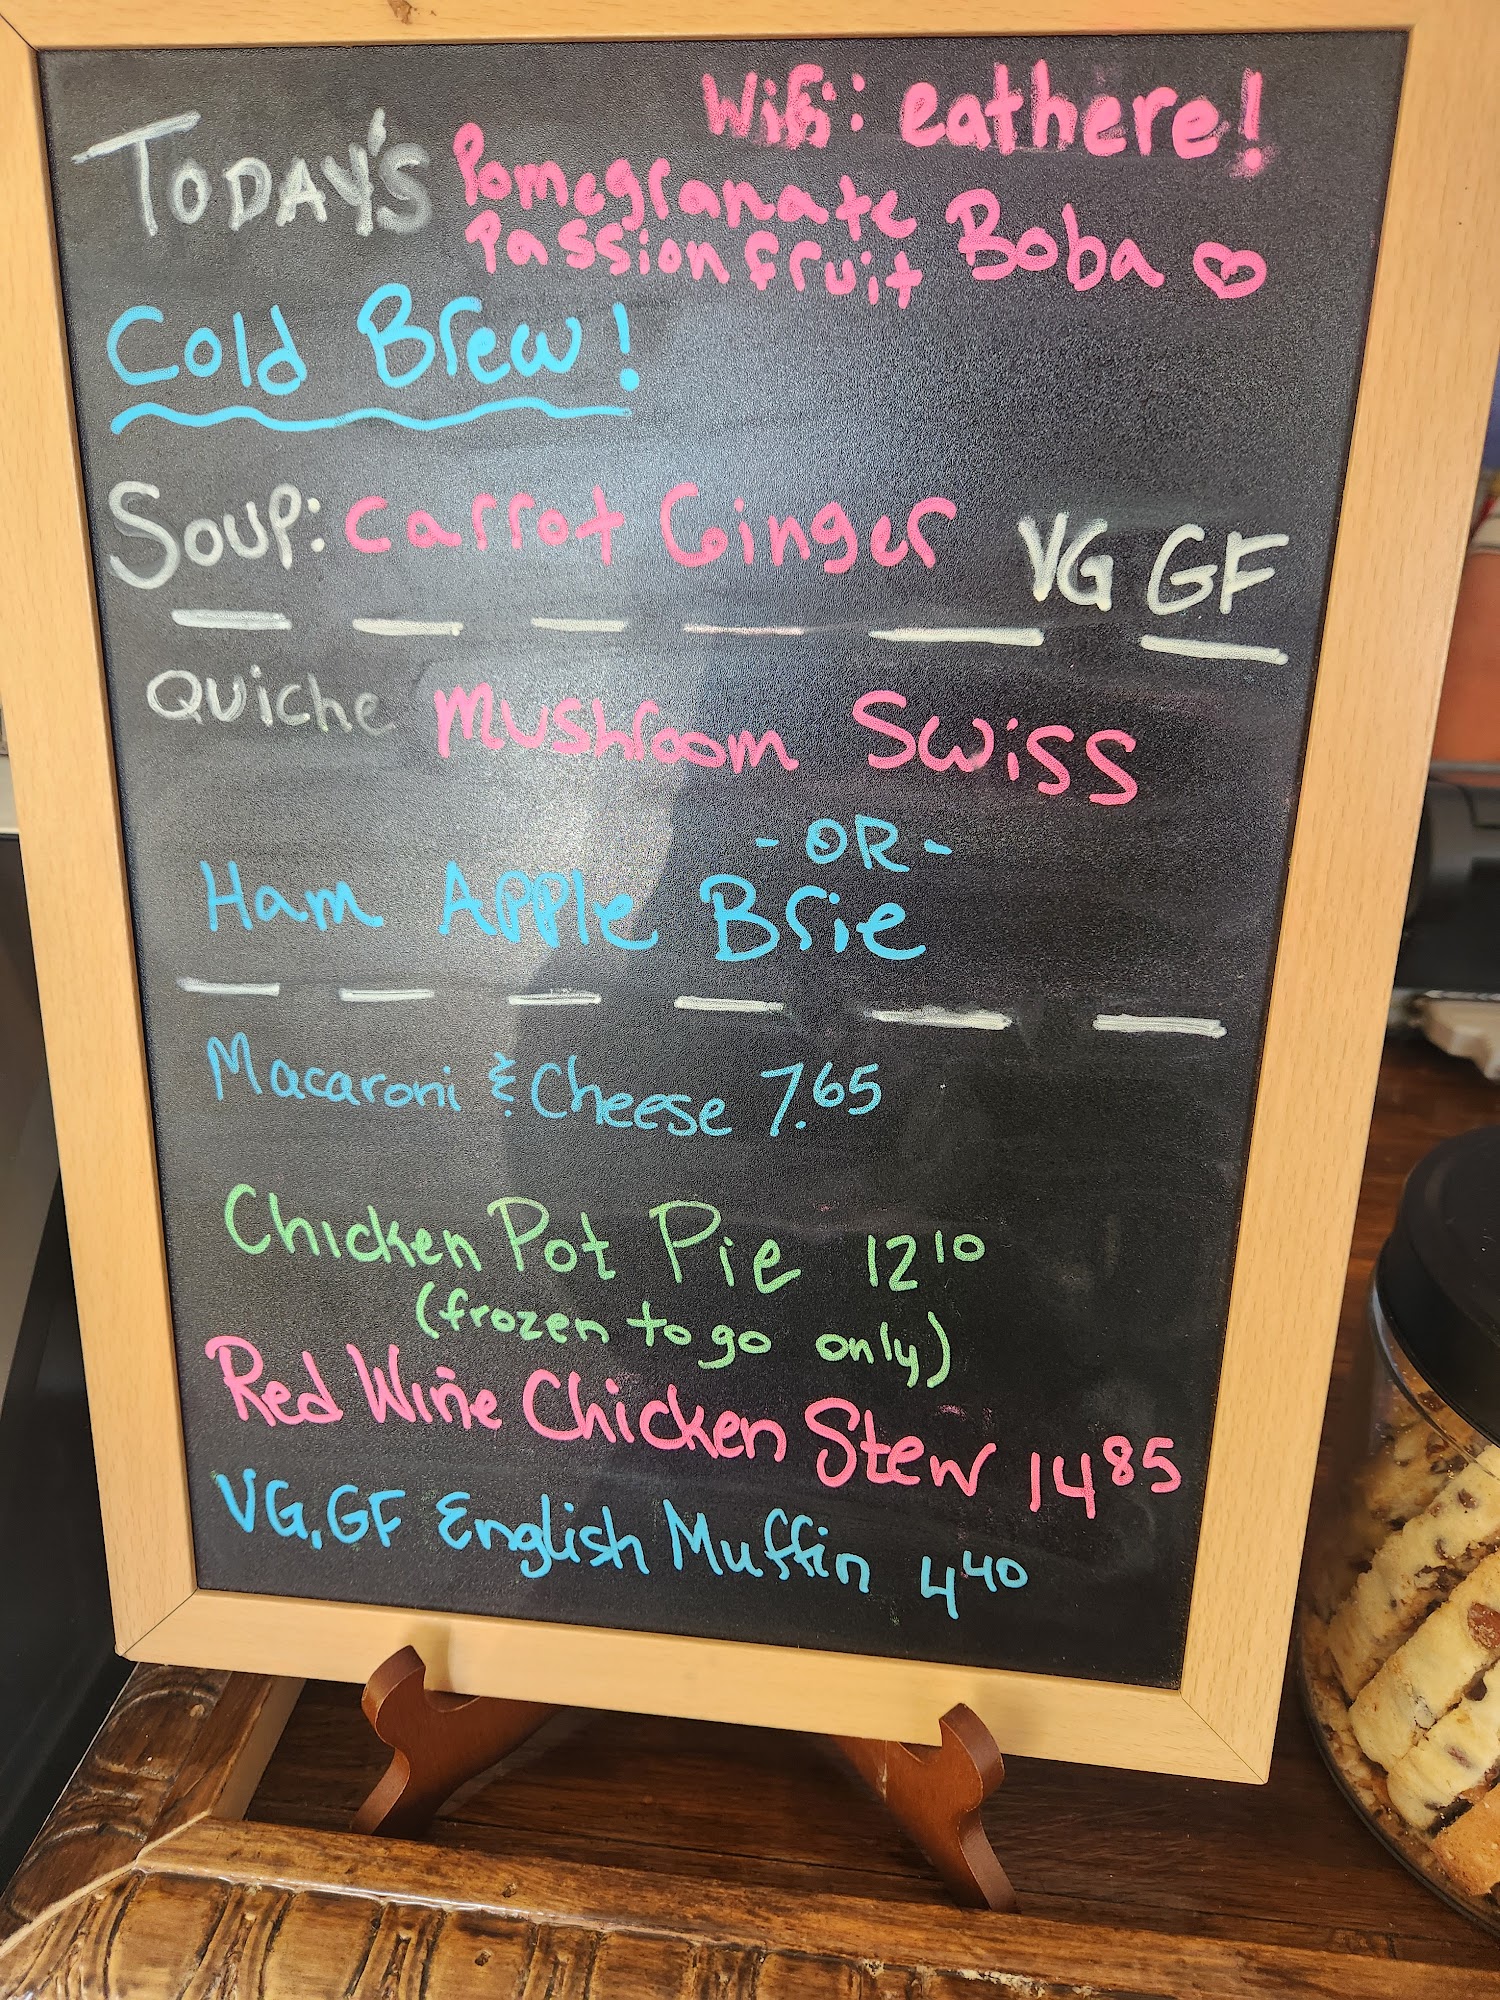 Wifi: eathere!
TODAY'S Pomegranate Boba
Passionfruit
Cold Brew!
Soup: Carrot Ginger VG GF
Quiche Mushroom Swiss
-OR-
Ham Apple Brie
Macaroni & Cheese 7.65
Chicken Pot Pie 12 10
(frozen to go only)
Red Wine Chicken Stew 14 85
VG, GF English Muffin 4 40